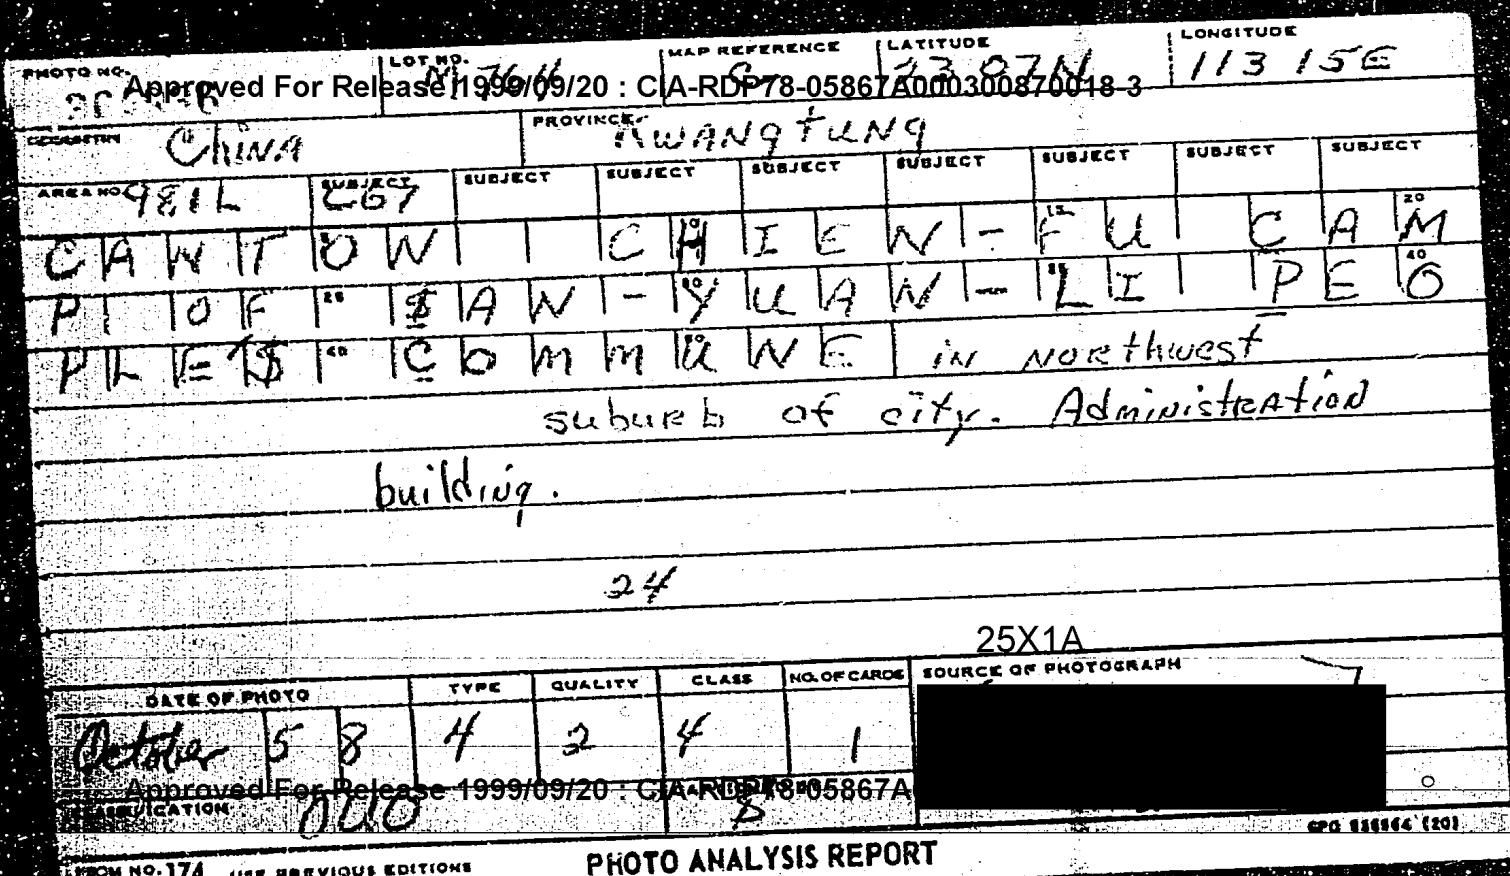 PHOTO NO. LOT NO. MAP REFERENCE LATITUDE LONGITUDE
23 07N 113 15E
Approved For Release 1999/09/20 : CIA-RDP78-05867A000300870018-3
China PROVINCE KWANGTUNG
AREA NO. SUBJECT SUBJECT SUBJECT SUBJECT SUBJECT SUBJECT SUBJECT SUBJECT
981L C67
CANTON CHIEN-FU CAM
P OF SAN-YUAN-LI PEO
PLE'S COMMUNE in Northwest
suburb of city. Administration
building.
24
25X1A
DATE OF PHOTO TYPE QUALITY CLASS NO. OF CARDS SOURCE OF PHOTOGRAPH
October 58 4 2 4 1
Approved For Release 1999/09/20 : CIA-RDP78-05867A
CLASSIFICATION OUO
GPO (20)
FORM NO. 174 USE PREVIOUS EDITIONS PHOTO ANALYSIS REPORT